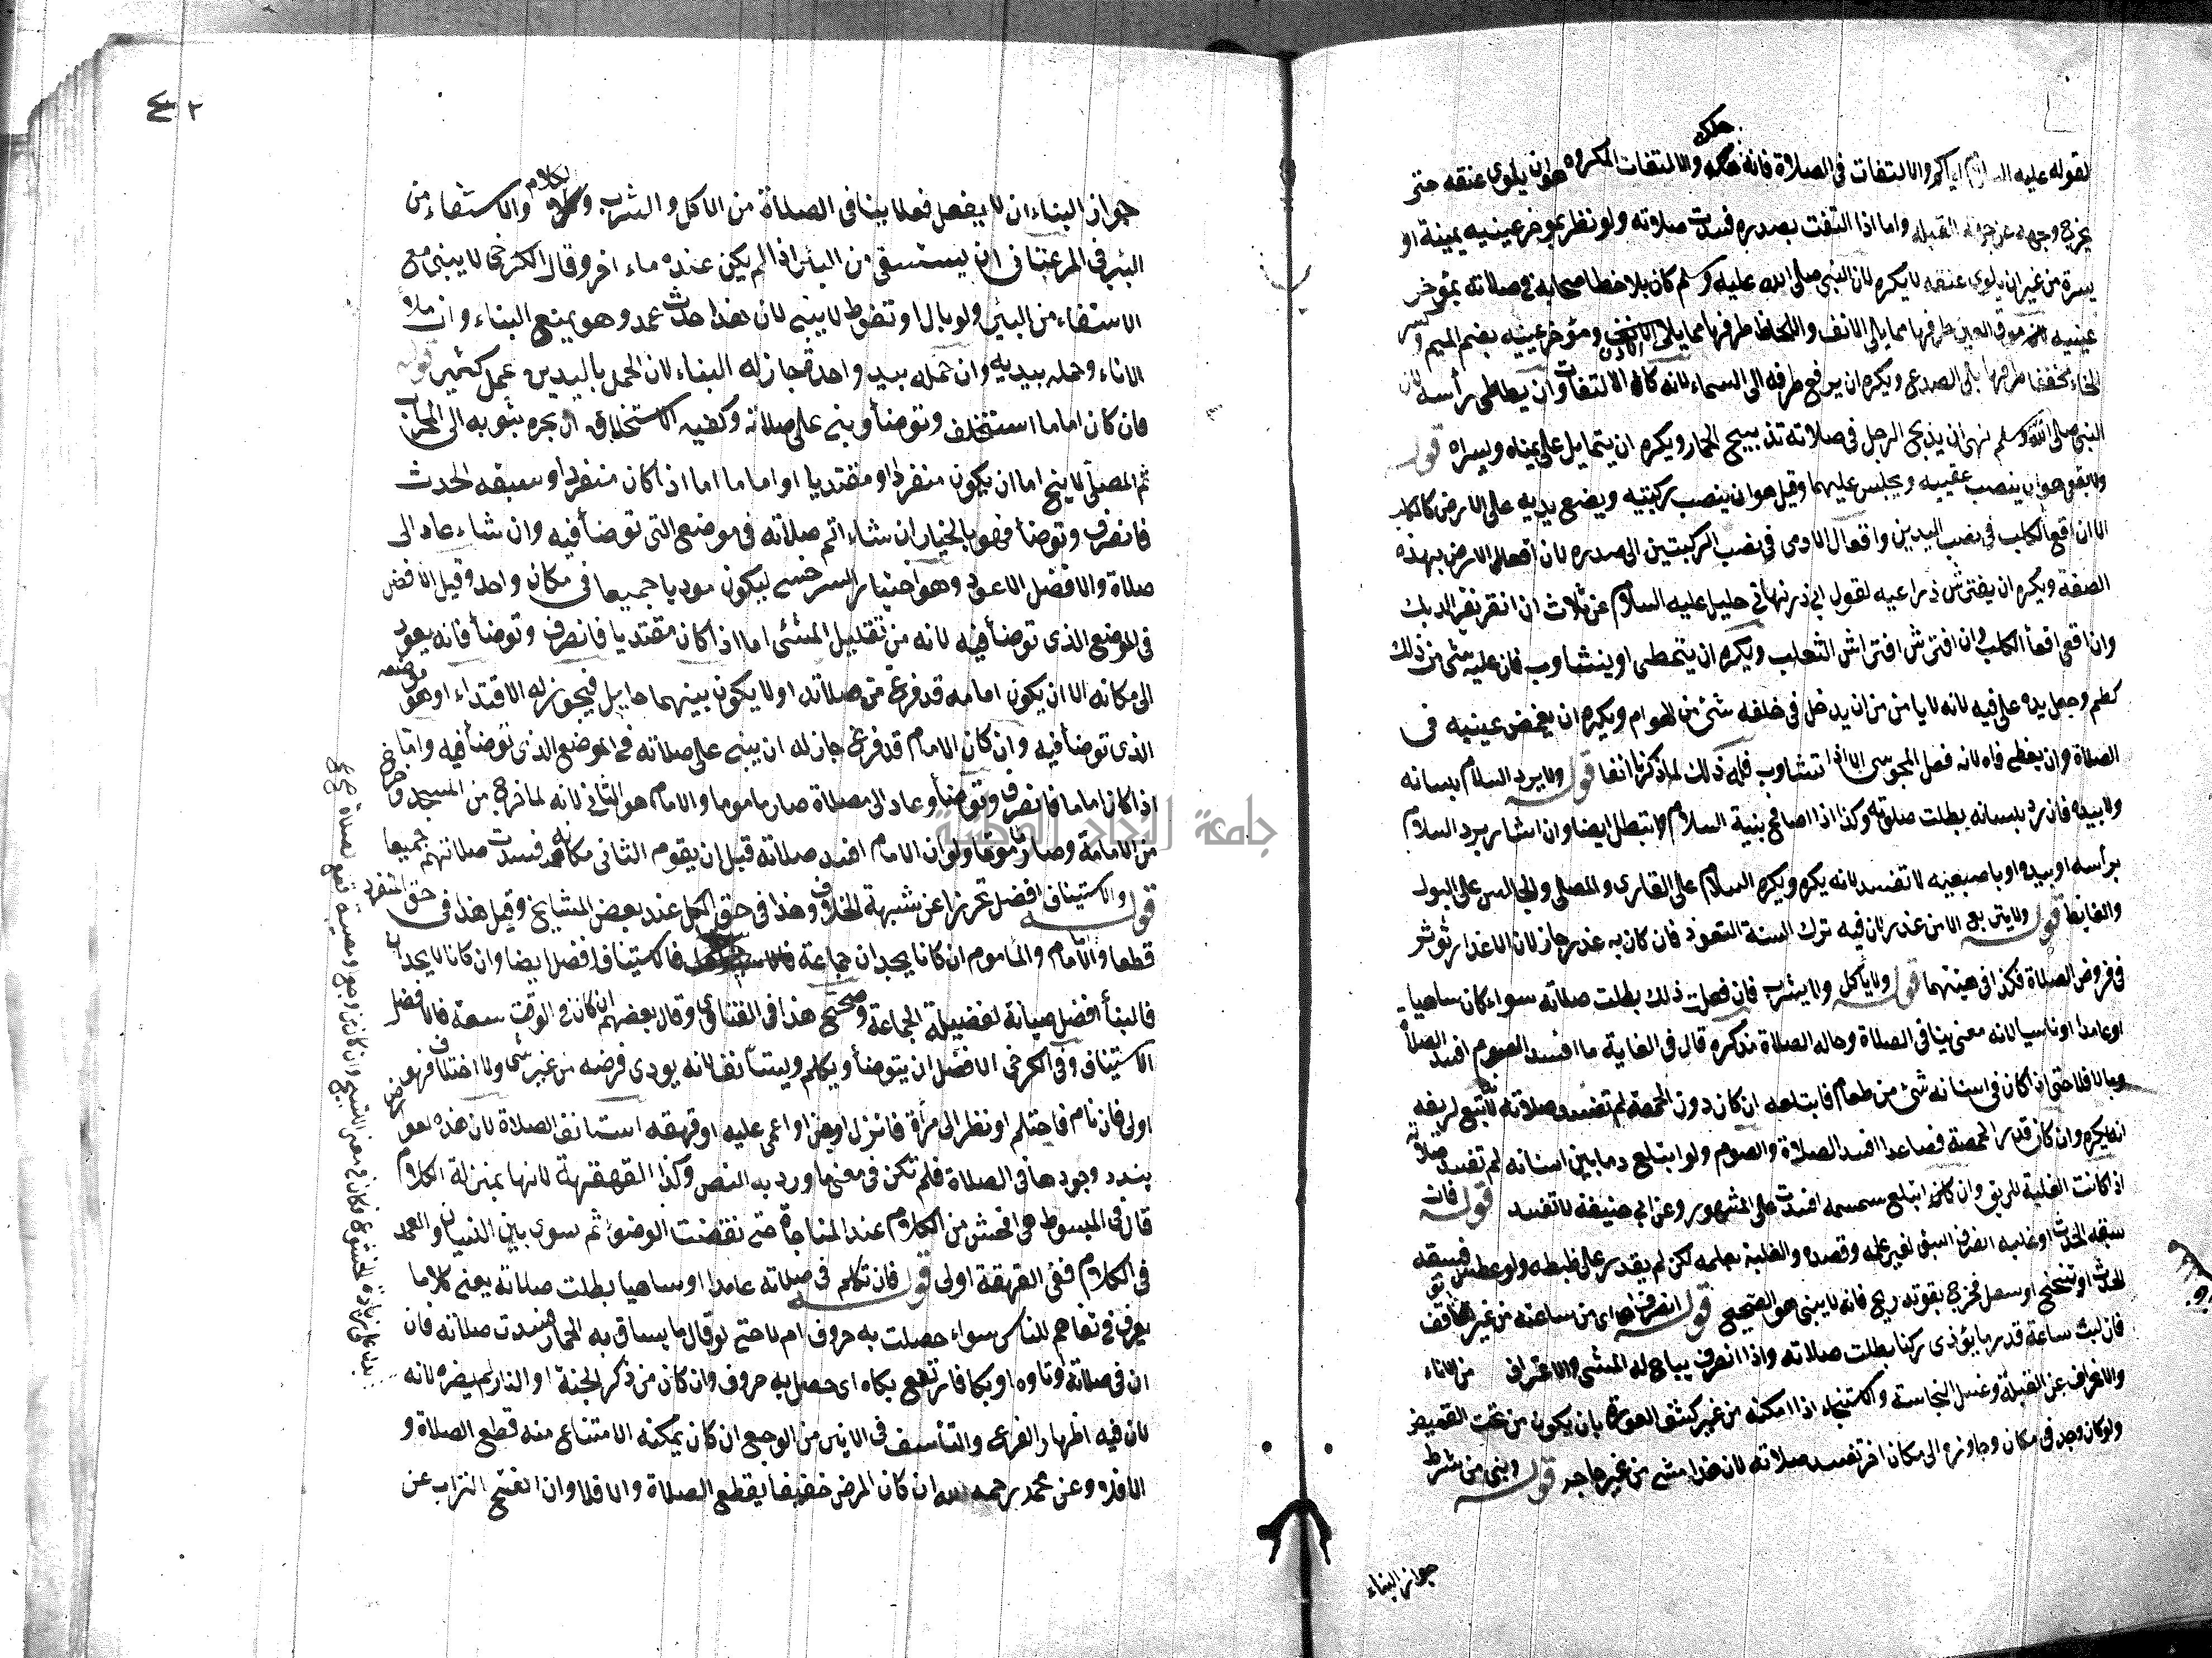 لقوله عليه السلام اياكم والالتفات في الصلاة فانه هلكه والالتفات المكروه هو ان يلوى عنقه حتى
يخرج وجهه عن جهة القبله واما اذا التفت بصدره فسدت صلاته ولو نظر بموخر عينيه يمينة او
يسرة من غير ان يلوى عنقه لا يكره لان النبي صلى الله عليه وسلم كان يلاحظ اصحابه في صلاته بمؤخر
عينيه موق العين طرفها مما يلى الانف واللحاظ طرفها مما يلى الاذن ومؤخر عينيه بضم الميم وكسر
الخاء مخففا طرفها يلى الصدغ ويكره ان يرفع طرفه الى السماء لانه كالالتفات وان يطاطى رأسه لان
النبي صلى الله وسلم نهى ان يذبح الرجل في صلاته تذبيح الحمار ويكره ان يتمايل على يمناه ويسراه قوله
ولا يقعى هو ان ينصب عقبيه ويجلس عليهما وقيل هو ان ينصب ركبتيه ويضع يديه على الارض كالكلب
الا ان اقع الكلب في نصب اليدين واقعال الادمى في نصب الركبتين الى صدره لان اقعا الارض بهذه
الصفة ويكره ان يفترش ذراعيه لقول ابي ذر نهاني خليل عليه السلام عن ثلاث ان انقر نقر الديك
وان اقعى اقعأ الكلب وان افترش افتراش الثعلب ويكره ان يتمطى او يتشاوب فان عليه شئ من ذلك
كظم وجعل يده على فيه لانه لا يامن من ان يدخل في خلقه شئ من الهوام ويكره ان يغمض عينيه في
الصلاة وان يغطى فاه لانه فصل المجوسى الا اذا تتشاوب فله ذلك لما ذكرنا انفا قوله ولا يرد السلام بلسانه
ولا بيده فان رد بلسانه بطلت صلوته وكذا اذا صافح بنية السلام تبطل ايضا وان اشار برد السلام
برأسه او بيده او باصبعيه لا تفسد لانه يكره ويكره السلام على القارى والمصلى والجالس على البول
والغايط قوله ولا يتربع الا من عذر لان فيه ترك السنة القعود فان كان به عذر جاز لان الاعذار تؤثر
في فروض الصلاة فكذا في هيئتهما قوله ولا ياكل ولا يشرب فان فعلت ذلك بطلت صلاته سواء كان ساهيا
او عامدا او ناسيا لانه معنى ينافى الصلاة وحاله الصلاة مذكره قال في الغاية ما افسد الصوم افسد الصلاة
ومالا فلا حتى اذا كان في اسنانه شئ من طعام فابتلعه ان كان دون الحمصة لم تفسد صلاته لانه تبع لريقه
انه يكره وان كان قدر الحمصة فصاعدا افسد الصلاة والصوم ولو ابتلع دما بين اسنانه لم تفسد صلاته
اذا كانت الغلبة للريق وان كان ابتلع سمسمه افسدت على المشهور وعن ابي حنيفة لا تفسد قوله فان
سبقه الحدث او غلبه انصرف السبق لغير علمه وقصده والغلبة بعلمه لكن لم يقدر على ظبطه ولو عطس فسبقه
الحدث او تنحنح او سعل فخرج بقوته ريح فانه لا يبنى هو الصحيح قوله انصرف اى من ساعته من غير توقف
فان لبث ساعة قدر ما يؤدى ركنا بطلت صلاته واذا انصرف يباح له المشى والاغتراف من الاناء
والانحراف عن القبلة وغسل النجاسة والاستنجاء اذا امكنه من غير كشف العورة بان يكون من تحت القميص
ولو كان وجد في مكان وجاوزه الى مكان اخر تفسد صلاته لان هذا مشى من غير حاجه قوله وبنى من شرط
جواز البناء
٤٢
جواز البناء ان لا يفعل فعلا ينافى الصلاة من الاكل والشرب والكلام والاستقاء من
البئر في المرغينانى ان يستسقى من البئر اذا لم يكن عنده ماء اخر وقال الكرخى لا يبنى مع
الاستقاء من البئر ولو بال او تغوط لا يبنى لان هذا حدث عمد وهو يمنع البناء وان ملأ
الاناء وحمله بيديه وان حمله بيد واحدة جاز له البناء لان الحمل باليدين عمل كثير قوله
فان كان اماما استخلف وتوضأ وبنى على صلاته وكفيه الاستخلاف ان يجره بثوبه الى المحراب
ثم المصلى لا ينج اما ان يكون منفردا او مقتديا او اماما اما اذا كان منفردا وسبقه الحدث
فانصرف وتوضأ فهو بالخيار ان شاء اتم صلاته في موضع التى توضأ فيه وان شاء عاد الى
صلاة والافضل العود وهو اختيار السرخسى ليكون موديا جميعا في مكان واحد وقيل الافضل
في الموضع الذى توضأ فيه لانه من تقليل المشى اما اذا كان مقتديا فانصرف وتوضأ فانه يعود
الى مكانه الا ان يكون امامه قد فرغ من صلاته او لا يكون بينهما حايل فيجوز له الاقتداء او هو موضعه
الذى توضأ فيه وان كان الامام قد فرغ جاز له ان يبنى على صلاته في الموضع الذى توضأ فيه واما
اذا كان اماما فانصرف وتوضأ وعاد الى مصلاة صار ماموما والامام هو الثانى لانه لما خرج من المسجد خرج
من الامامة وصار ماموما ولو ان الامام افسد صلاته قبل ان يقوم الثانى مكانه فسدت صلاتهم جميعا
قوله والاستيناف افضل تحرزا عن شبهة الخلاف وهذا في حق الكل عند بعض المشايخ وقيل هذا في حق المنفرد
قطعا والامام والماموم ان كانا يجدان جماعة فالاستيناف افضل ايضا وان كانا لا يجدان
فالبنأ افضل صيانة لفضيلة الجماعة وصحح هذا في الفتاوى وقال بعضهم ان كان في الوقت سعة فالافضل
الاستيناف وفي الكرخى الافضل ان يتوضأ ويكلم ويستأنف لانه يودى فرضه من غير شى ولا اختلاف فهو
اولى فان نام فاحتلم او نظر الى مرأة فانزل او جن او اغمى عليه او قهقه استانف الصلاة لان هذه العوارض
يندر وجودها في الصلاة فلم تكن في معنى ما ورد به النص وكذا القهقهة لانها بمنزلة الكلام
قال في المبسوط هى افحش من الكلام عند المناجاة حتى نقضت الوضؤ ثم سوى بين النسيان والعمد
في الكلام ففى القهقهة اولى قوله فان تكلم في صلاته عامدا او ساهيا بطلت صلاته يعنى كلاما
يعرف في تفاهم للناس سواء حصلت به حروف ام لا حتى لو قال ما يساق به الحمار فسدت صلاته فان
ان في صلاته وتاوه او بكا فارتفع بكاه اى حصل به حروف وان كان من ذكر الجنة او النار لم يضره لانه
لان فيه اظهار الفرع والتأسف في الانين من الوجع ان كان يمكنه الامتناع منه قطع الصلاة و
الا فلا وعن محمد رحمه الله ان كان المرض خفيفا يقطع الصلاة والا فلا وان انفخ التراب عن
جامعة النجاح الوطنية